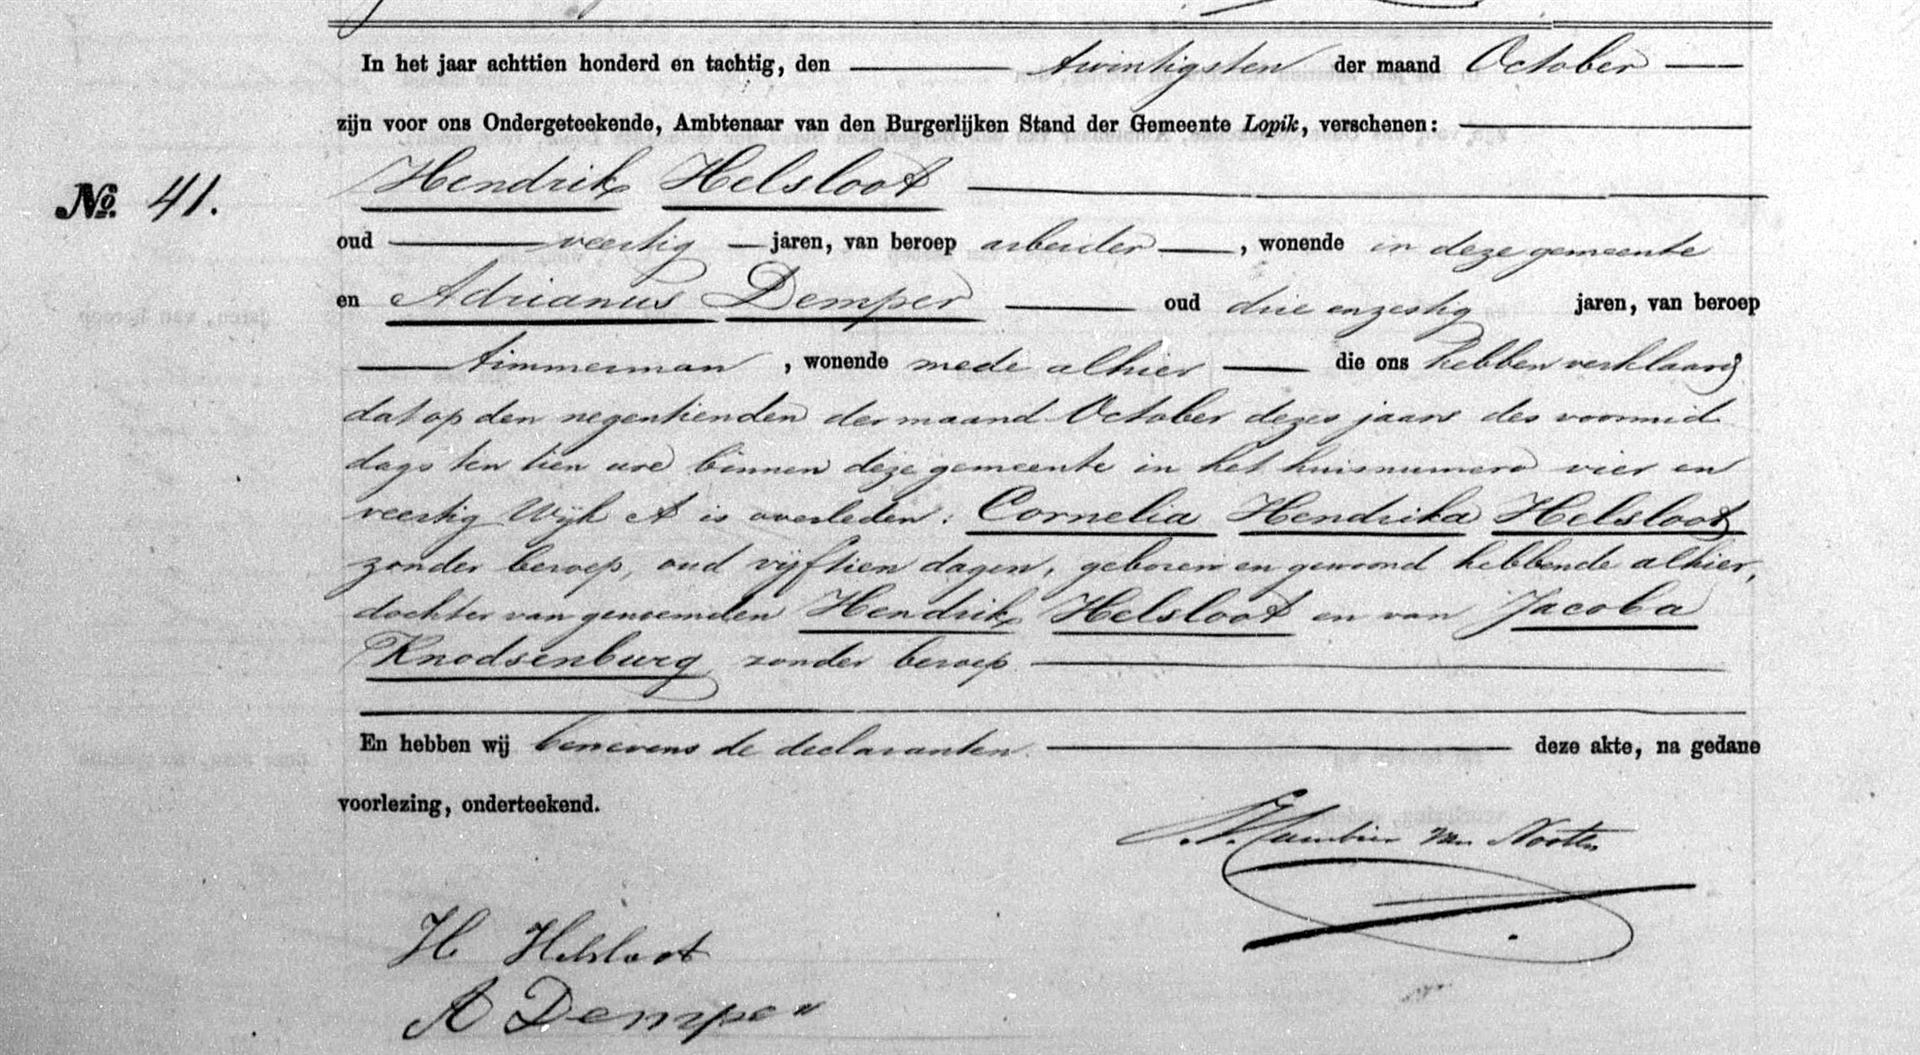 In het jaar achttien honderd en tachtig, den twintigsten der maand October
zijn voor ons Ondergeteekende, Ambtenaar van den Burgerlijken Stand der Gemeente Lopik, verschenen:
Hendrik Helsloot
No. 41.
oud veertig jaren, van beroep arbeider, wonende in deze gemeente
en Adrianus Demper oud drie en zestig jaren, van beroep
timmerman, wonende mede alhier die ons hebben verklaard
dat op den negentienden der maand October dezes jaars des voormid
dags ten tien ure binnen deze gemeente in het huis numero vier en
veertig Wijk A is overleden: Cornelia Hendrika Helsloot
zonder beroep, oud vijftien dagen, geboren en gewoond hebbende alhier,
dochter van genoemden Hendrik Helsloot en van Jacoba
Knodsenburg zonder beroep
En hebben wij benevens de declaranten deze akte, na gedane
voorlezing, onderteekend.
van Nooten
H Helsloot
A Demper